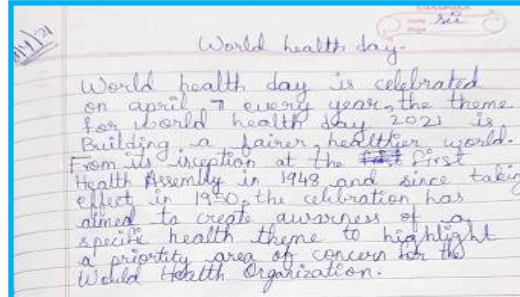 sii
8/4/21
World health day.
World health day is celebrated
on april 7 every year, the theme
for world health day 2021 is
Building a fairer, healthier world.
From its inception at the first
Health Assembly in 1948 and since taking
effect in 1950, the celebration has
aimed to create awarness of a
specific health theme to highlight
a priortity area of concern for the
World Health Organization.